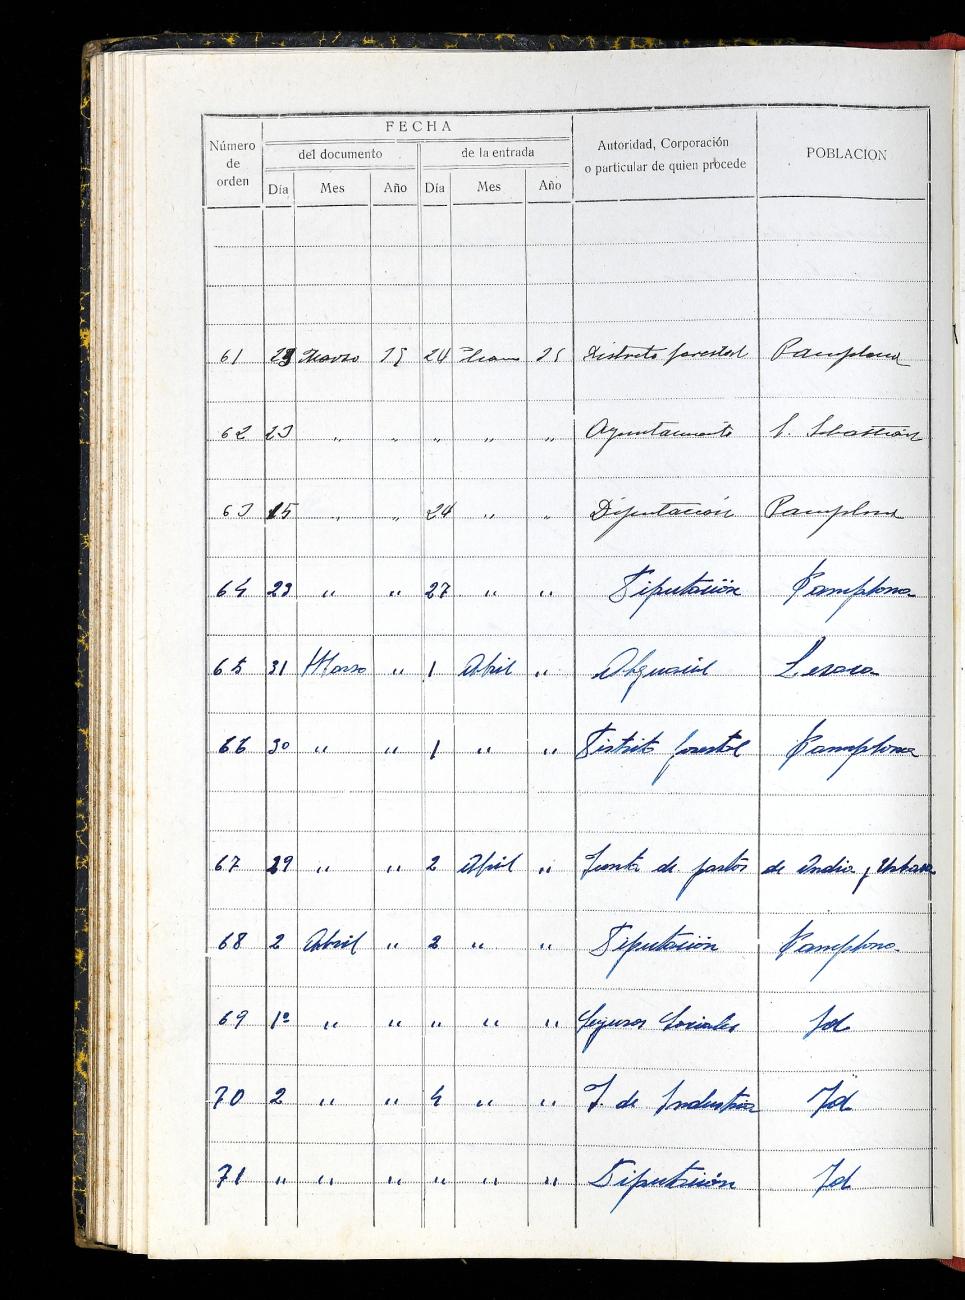 FECHA
Número de orden
del documento
de la entrada
Autoridad, Corporación o particular de quien procede
POBLACION
Día Mes Año Día Mes Año
61 23 Marzo 24 Distrito forestal Pamplona
62 23 " " " " " Ayuntamiento S. Sebastián
63 15 " " 24 " " Diputación Pamplona
64 23 " " 27 " " Diputación Pamplona
65 31 Marzo " 1 Abril " Lesaca
66 30 " " 1 " " Distrito forestal Pamplona
67 29 " " 2 Abril " Junta de pastos de Andia y Urbasa
68 2 Abril " 2 " " Diputación Pamplona
69 1º " " " " " Seguros Sociales Id
70 2 " " 4 " " J. de Industria Id
71 " " " " " " Diputación Id